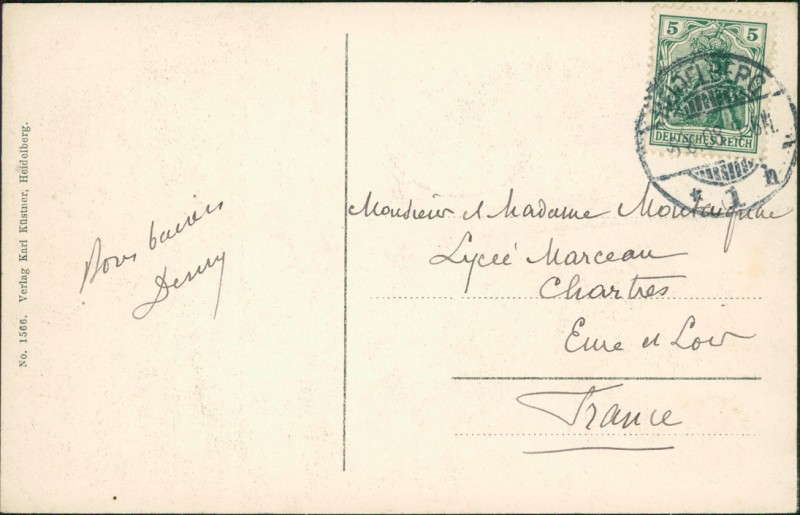 No. 1566. Verlag Karl Küstner, Heidelberg.
Bons baisers
5 5
DEUTSCHES REICH
HEIDELBERG
* 1 n
Monsieur et Madame Montaigne
Lycée Marceau
Chartres
Eure et Loir
France